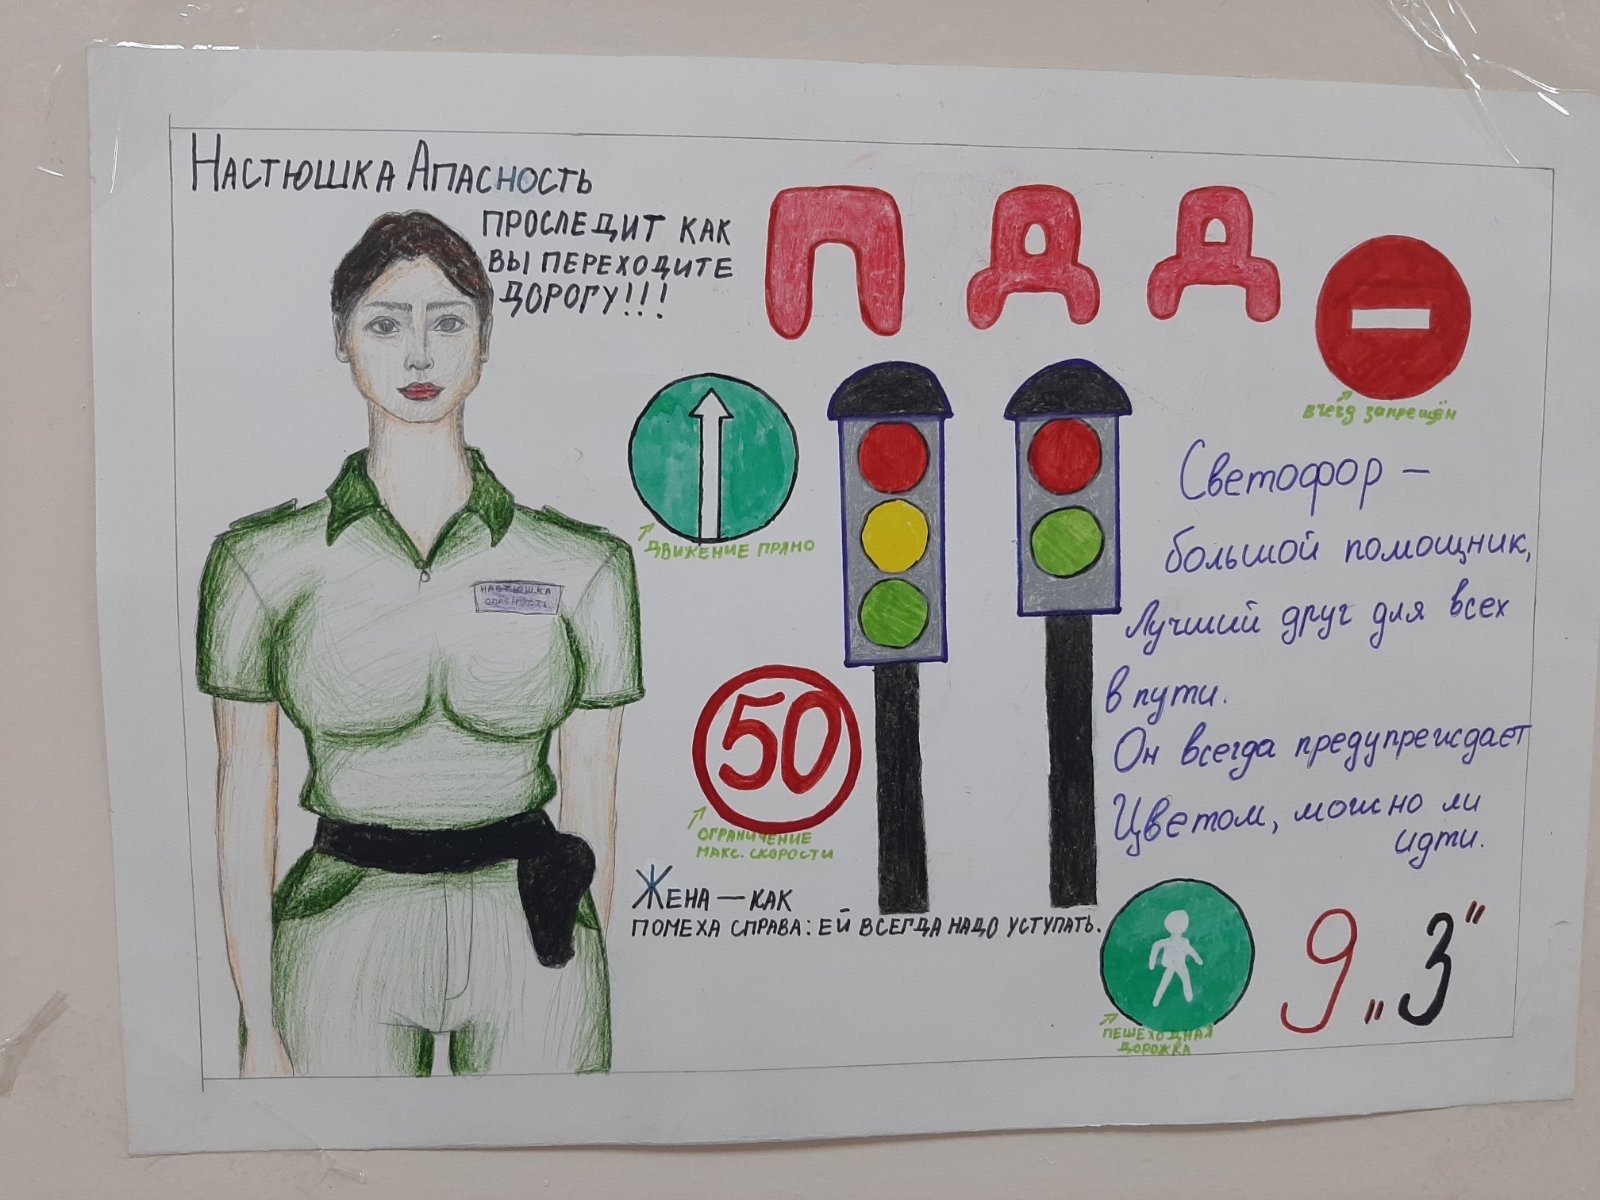 НАСТЮШКА АПАСНОСТЬ
ПРОСЛЕДИТ КАК
ВЫ ПЕРЕХОДИТЕ
ДОРОГУ!!!
ПДД
Въезд запрещён
ДВИЖЕНИЕ ПРЯМО
НАСТЮШКА
ОПАСНОСТЬ
Светофор –
большой помощник,
Лучший друг для всех
в пути.
Он всегда предупреждает
Цветом, можно ли
идти.
50
ОГРАНИЧЕНИЕ
МАКС. СКОРОСТИ
ЖЕНА – КАК
ПОМЕХА СПРАВА: ЕЙ ВСЕГДА НАДО УСТУПАТЬ.
ПЕШЕХОДНАЯ
ДОРОЖКА
9 „З"